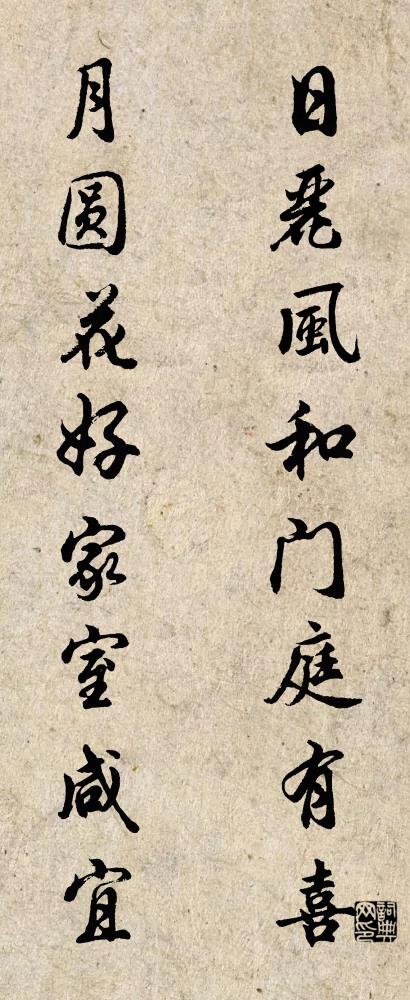 日麗風和门庭有喜
月圓花好家室咸宜
詞典网印